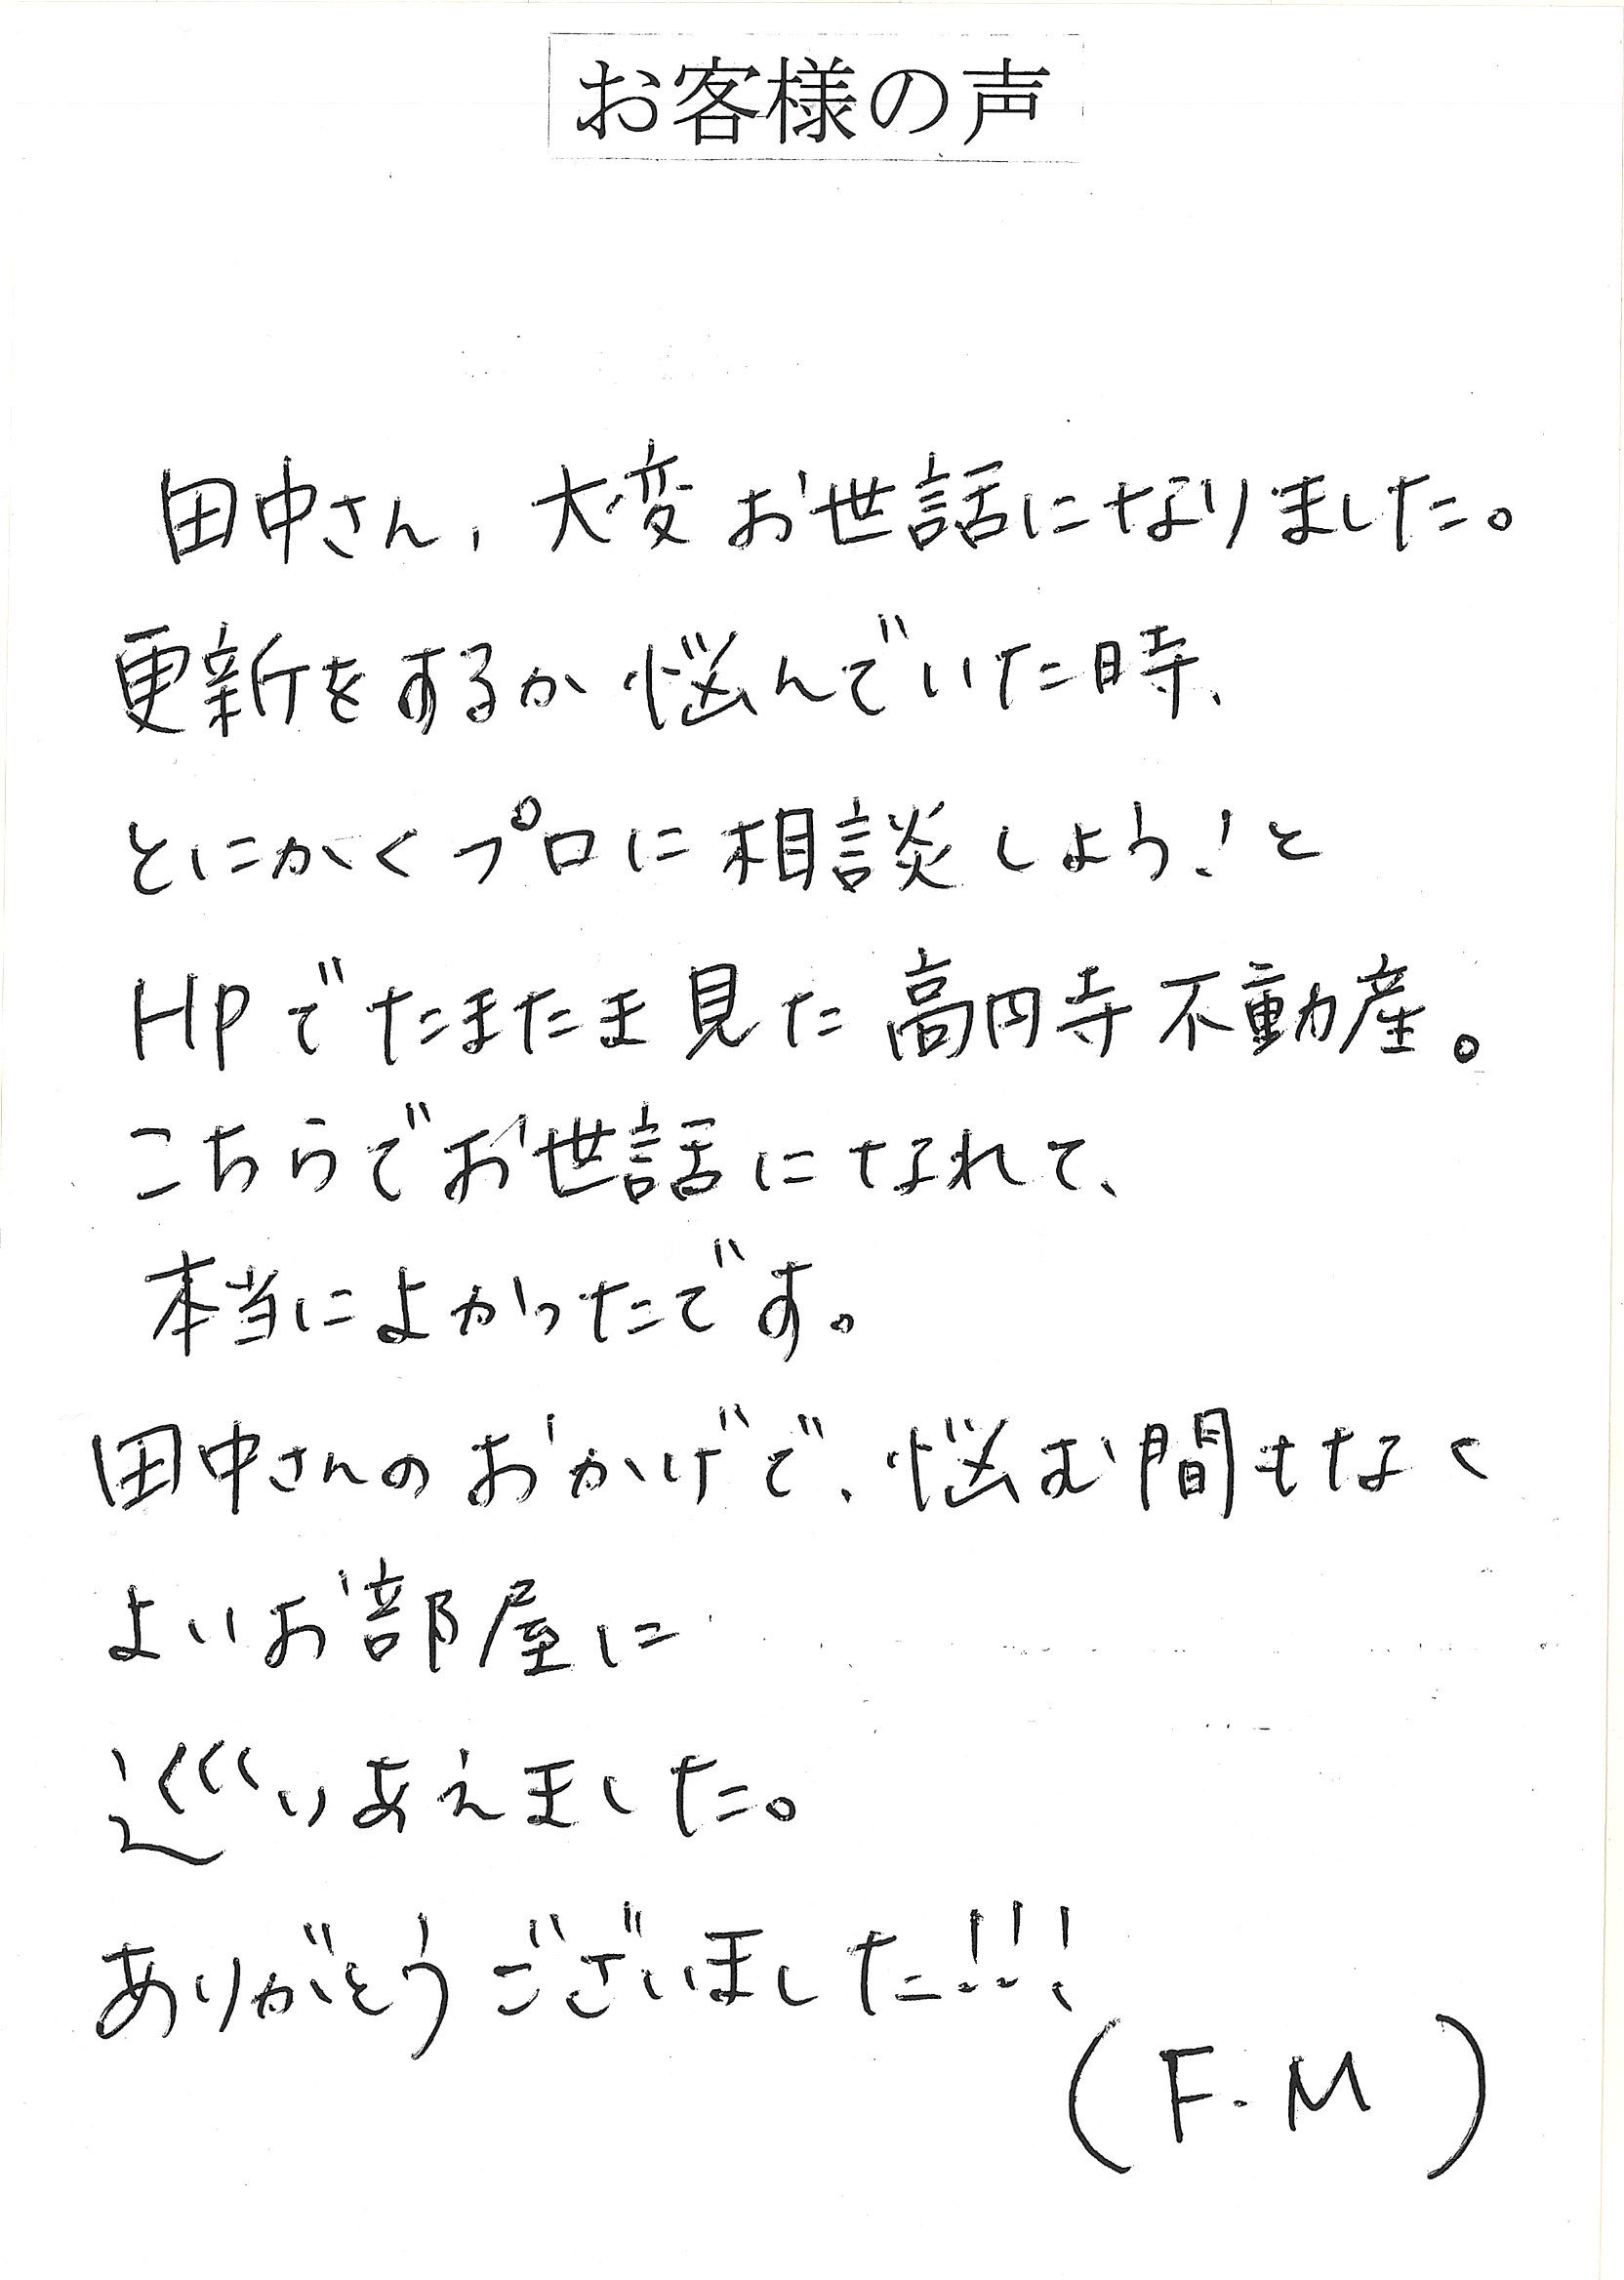 お客様の声
田中さん、大変お世話になりました。
更新をするか悩んでいた時、
とにかくプロに相談しよう!と
HPでたまたま見た高円寺不動産。
こちらでお世話になれて、
本当によかったです。
田中さんのおかげで、悩む間もなく
よいお部屋に
巡りあえました。
ありがとうございました!!!
(F.M)